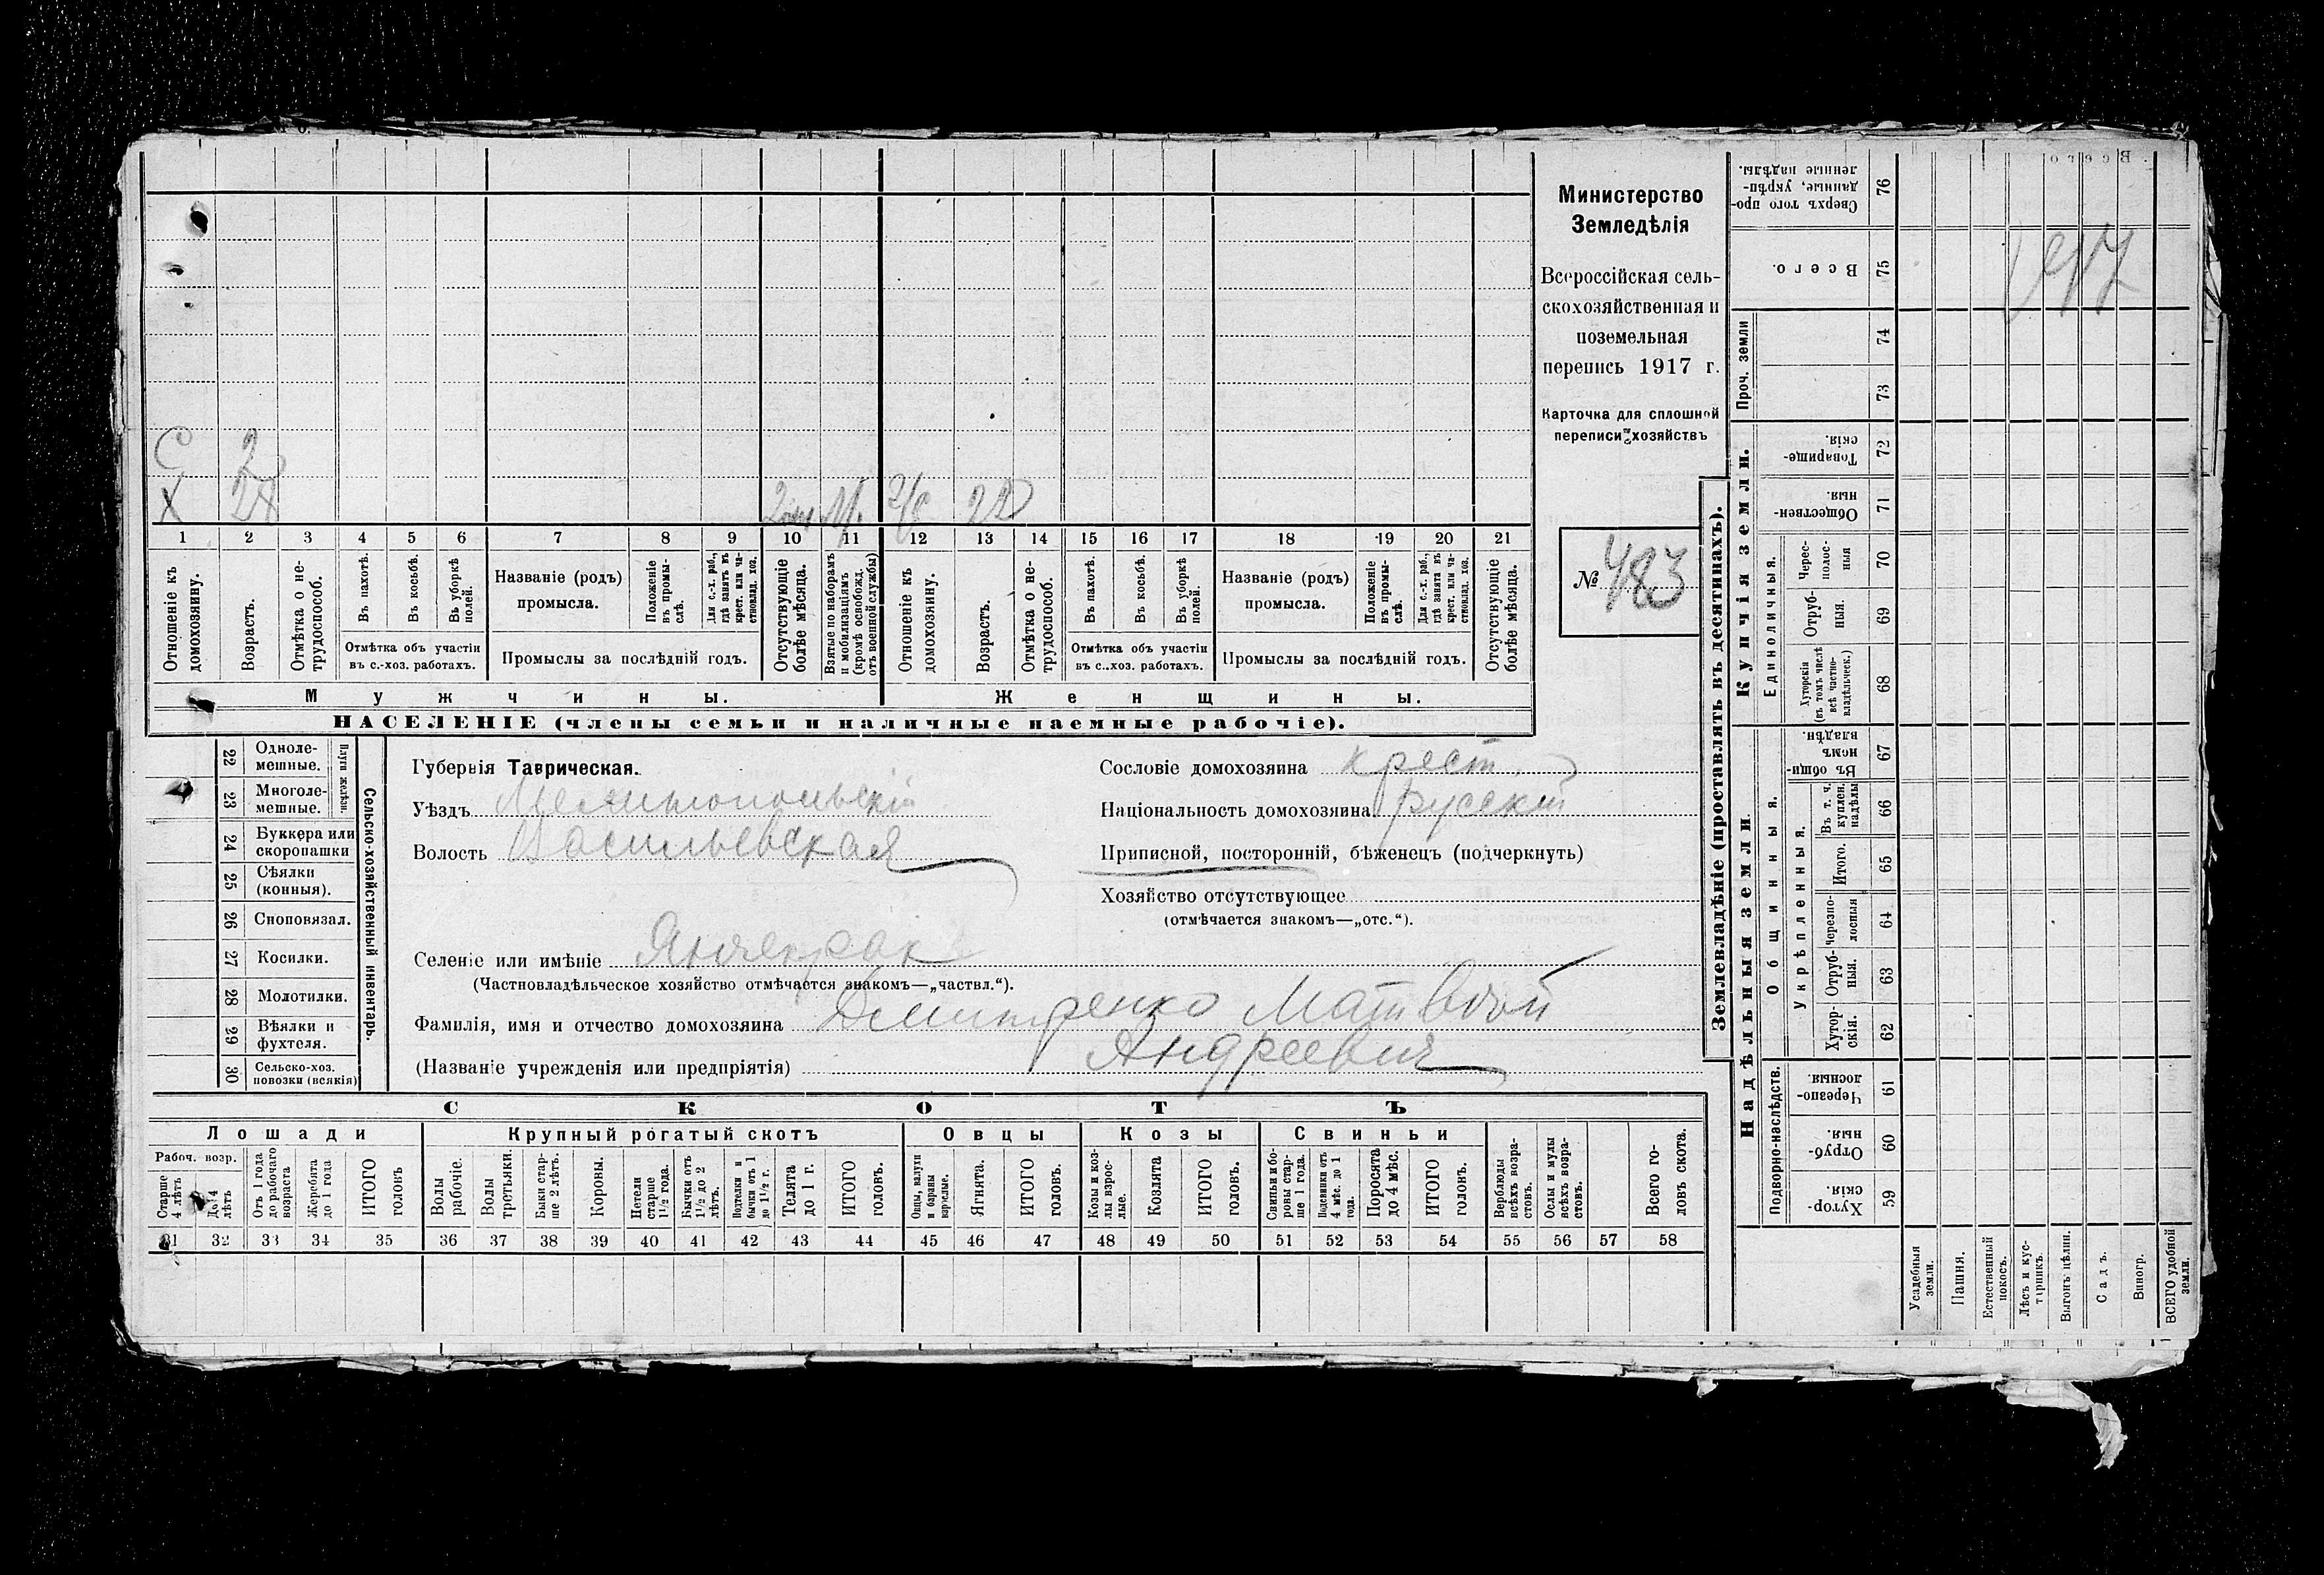 Министерство
Земледѣлія
Всероссійская сель-
скохозяйственная и
поземельная
перепись 1917 г.
Карточка для сплошной
переписи хозяйствъ
№ 483
С 2
Х 28 22
1 2 3 4 5 6 7 8 9 10 11 12 13 14 15 16 17 18 19 20 21
Отношеніе къ домохозяину.
Возрастъ.
Отмѣтка о не-трудоспособ.
Въ пахотѣ.
Въ косьбѣ.
Въ уборкѣ полей.
Отмѣтка объ участіи
въ с.-хоз. работахъ.
Названіе (родъ)
промысла.
Положеніе въ промы-слѣ.
Для с.-х. раб., гдѣ занятъ въ крест. или ча-стновлад. хоз.
Промыслы за послѣдній годъ.
Отсутствующіе болѣе мѣсяца.
Взятые по наборамъ и мобилизаціямъ (кромѣ освобожд. отъ военной службы)
Отношеніе къ домохозяину.
Возрастъ.
Отмѣтка о не-трудоспособ.
Въ пахотѣ.
Въ косьбѣ.
Въ уборкѣ полей.
Отмѣтка объ участіи
въ с.-хоз. работахъ.
Названіе (родъ)
промысла.
Положеніе въ промы-слѣ.
Для с.-х. раб., гдѣ занята въ крест. или ча-стновлад. хоз.
Промыслы за послѣдній годъ.
Отсутствующіе болѣе мѣсяца.
Мужчины. Женщины.
НАСЕЛЕНІЕ (члены семьи и наличные наемные рабочіе).
Сельско-хозяйственный инвентарь.
Плуги желѣзн.
22 Однолемешные.
23 Многолемешные.
24 Буккера или скоропашки
25 Сѣялки (конныя).
26 Сноповязал.
27 Косилки.
28 Молотилки.
29 Вѣялки и фухтеля.
30 Сельско-хоз. повозки (всякія)
Губернія Таврическая.
Уѣздъ Мелитопольскій
Волость Васильевская
Селеніе или имѣніе Янчекрак
(Частновладѣльческое хозяйство отмѣчается знакомъ—„частвл.“).
Фамилія, имя и отчество домохозяина Дмитренко Матвѣй
(Названіе учрежденія или предпріятія) Андреевич
Сословіе домохозяина крест.
Національность домохозяина русскій
Приписной, посторонній, бѣженецъ (подчеркнуть)
Хозяйство отсутствующее
(отмѣчается знакомъ—„отс.“).
СКОТЪ
Лошади Крупный рогатый скотъ Овцы Козы Свиньи
Рабоч. возр.
Старше 4 лѣтъ
До 4 лѣтъ
Отъ 1 года до рабочаго возраста
Жеребята до 1 года
ИТОГО головъ
Волы рабочіе.
Волы третьяки.
Быки стар-ше 2 лѣтъ.
Коровы.
Нетели старше 1½ года.
Бычки отъ 1½ до 2 лѣтъ.
Подтелки и бычки отъ 1 до 1½ г.
Телята до 1 г.
ИТОГО головъ.
Овцы, валухи и бараны взрослые.
Ягнята.
ИТОГО головъ.
Козы и коз-лы взрос-лые.
Козлята
ИТОГО головъ.
Свиньи и бо-ровы стар-ше 1 года.
Подсвинки отъ 4 мѣс. до 1 года.
Поросята до 4 мѣс.
ИТОГО головъ.
Верблюды всѣхъ возра-стовъ.
Ослы и мулы всѣхъ возра-стовъ.
Всего го-ловъ скота.
31 32 33 34 35 36 37 38 39 40 41 42 43 44 45 46 47 48 49 50 51 52 53 54 55 56 57 58
Землевладѣніе (проставлять въ десятинахъ).
Надѣльныя земли
Купчія земли.
Проч. земли
Подворно-наслѣдств.
Общинныя.
Укрѣпленныя.
Единоличныя.
Сверхъ того про-данные, укрѣп-ленные надѣлы. 76
Всего. 75
74
73
Товарище-скія. 72
Обществен-ныя. 71
Черес-полос-ныя 70
Отруб-ныя. 69
Хуторскія (въ томъ числѣ всѣ частно-владѣльческ.) 68
Въ общи-номъ владѣн. 67
Въ т. ч. куплен. надѣлы 66
Итого. 65
Черезпо-лосныя 64
Отруб-ныя. 63
Хутор-скія. 62
Черезпо-лосныя. 61
Отруб-ныя. 60
Хутор-скія. 59
Усадебныя земли.
Пашня.
Естественный покосъ.
Лѣсъ и кус-тарникъ.
Выгонъ цѣлин.
Садъ.
Виногр.
ВСЕГО удобной земли.
Всего